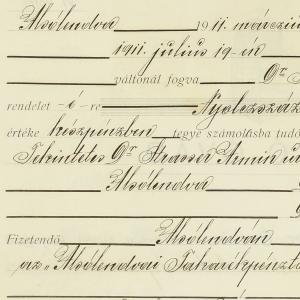 Alsólendva 1911. márczius
1911 július 19-én
váltónál fogva a Dr
rendelet -é- re Nyolczszáz
értéke készpénzben tegye számolásba tudó
Tekintetes Dr Strasser Ármin úr
Alsólendva
Fizetendő Alsólendván
az „Alsólendvai Takarékpénztá